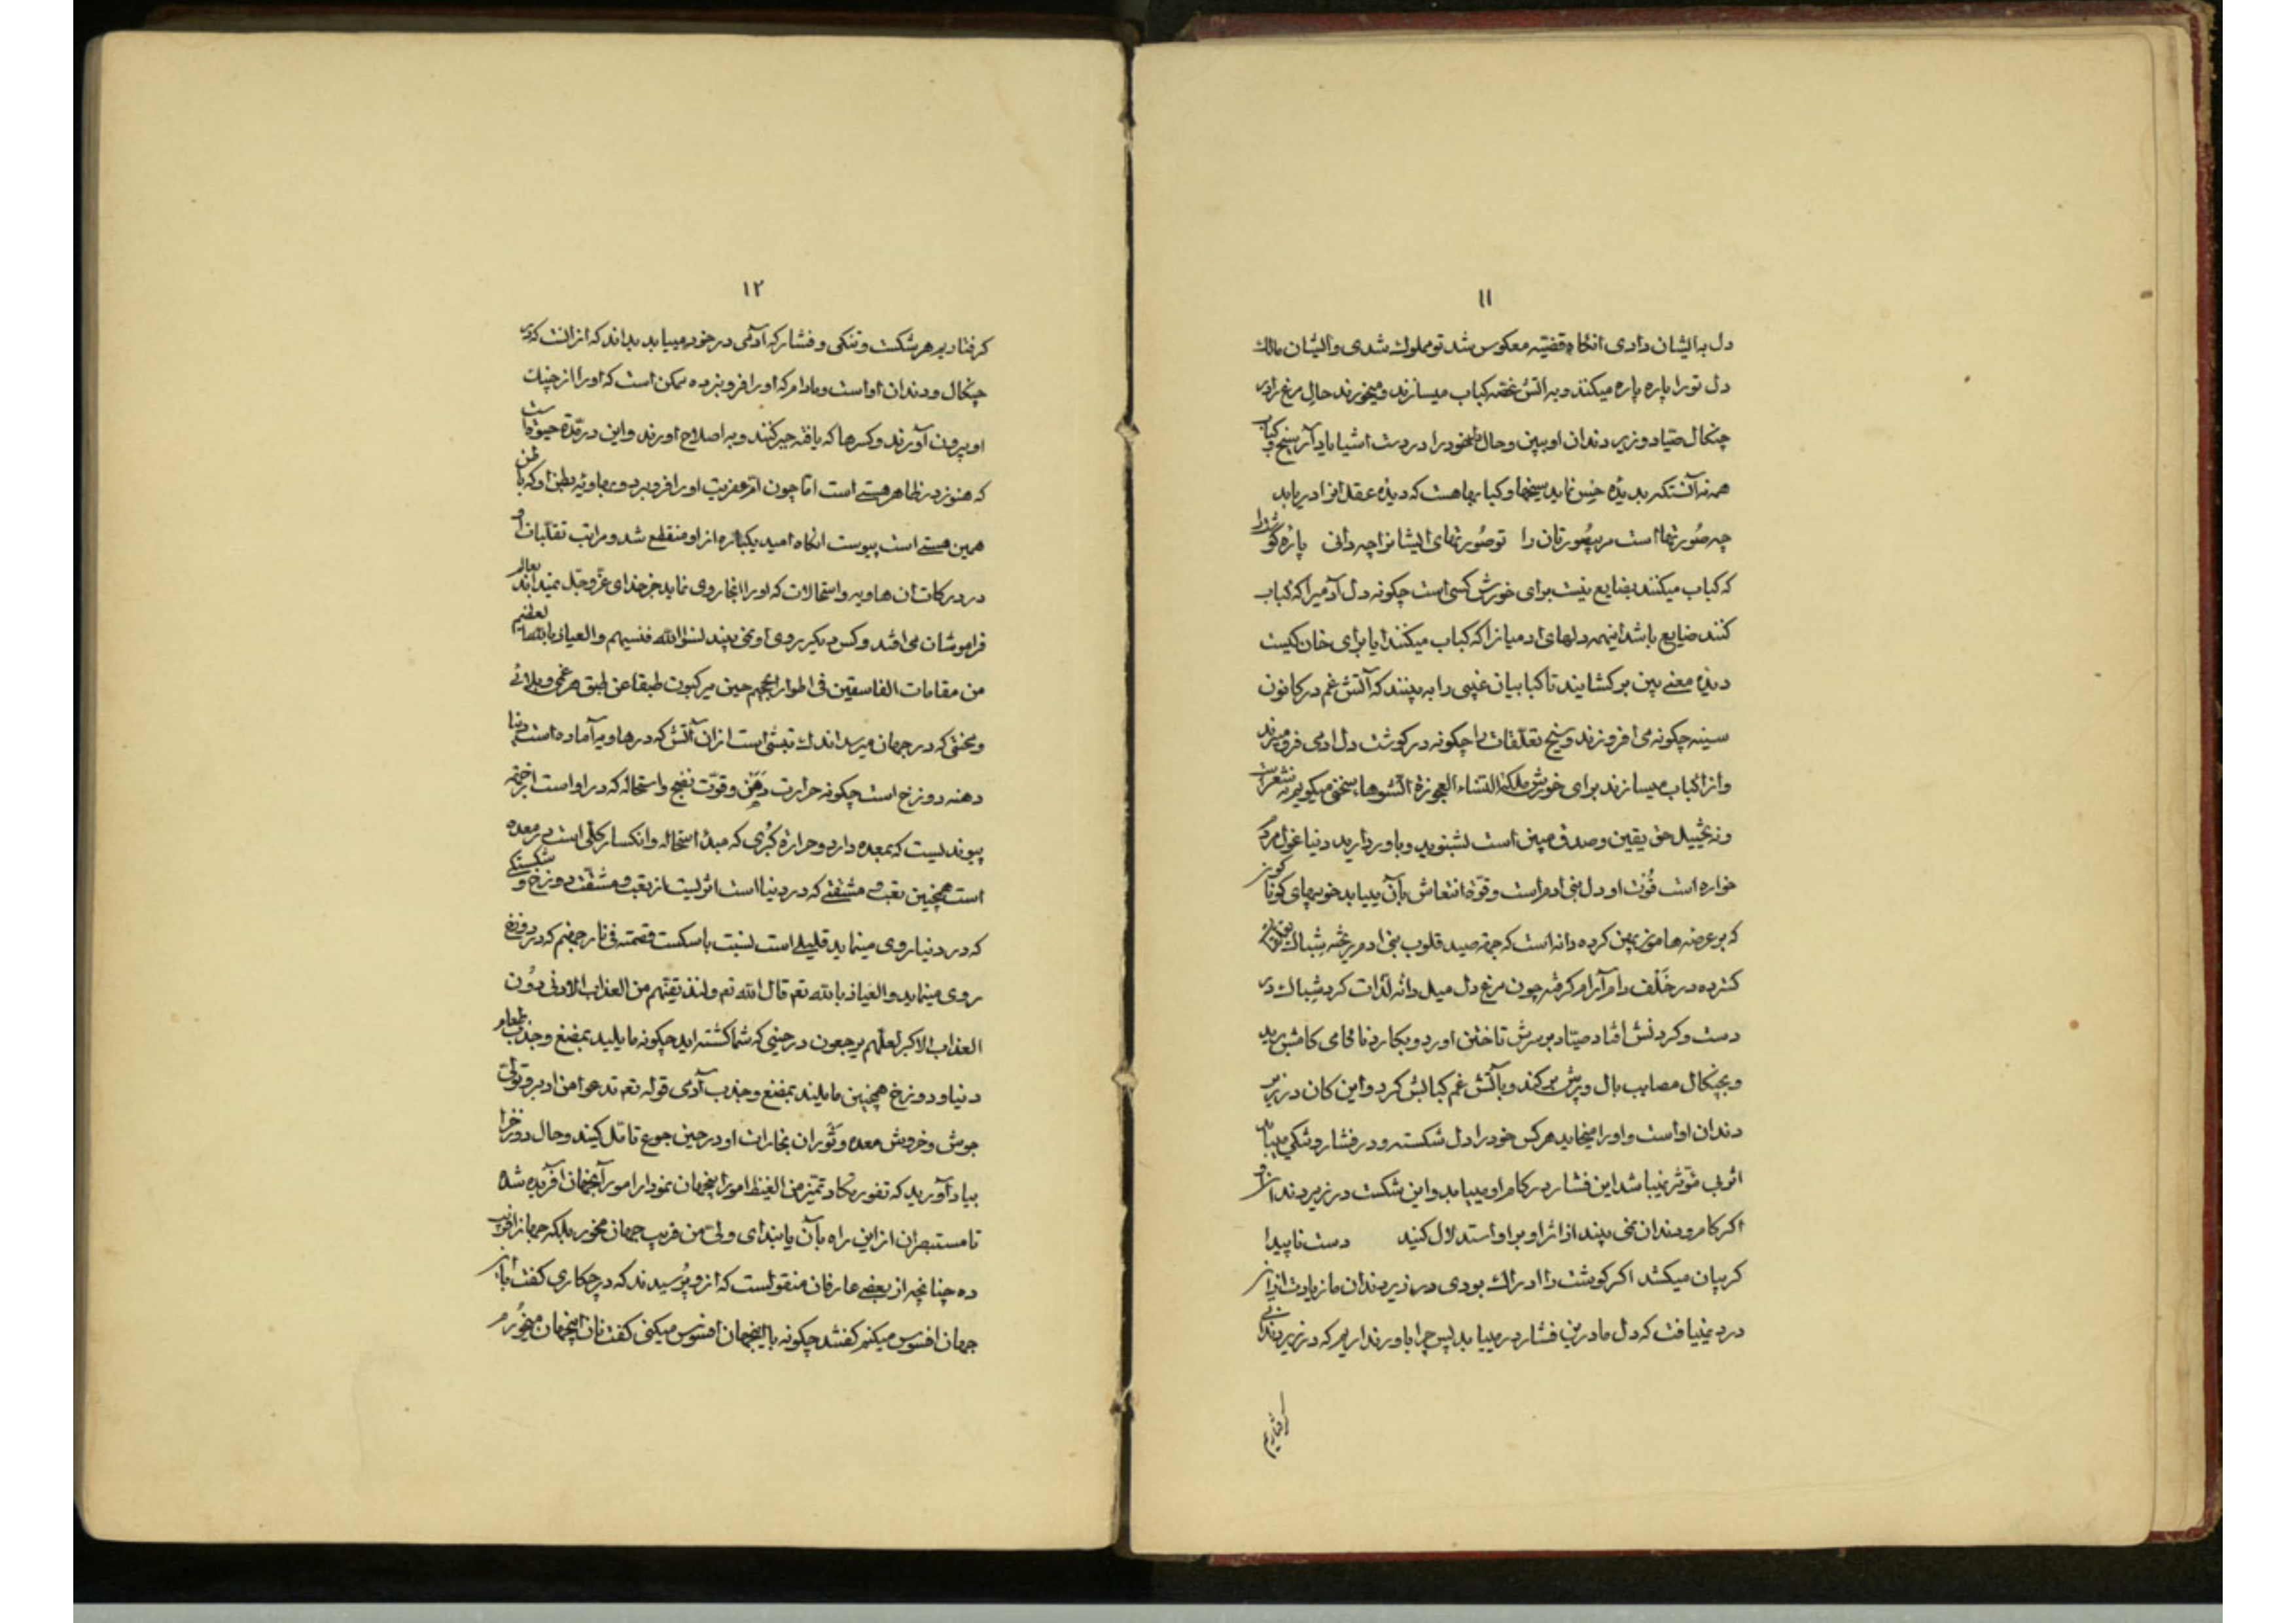 ۱۱
دل به ایشان دادی انکاه قضیه معکوس شد تو مملوک شدی و ایشان مالک
دل تو را پاره پاره میکنند و به اتش غصه کباب میسازند و میخورند حال مرغ را در
چنکال صیاد و زیر دندان او ببین و حال خود را در دست اشیا یاد آر سیخ و کباب
همه نه آنستکه بدیدهٔ حس نماید سیخها و کبابها هست که دیدهٔ عقل انرا دریابد
چه صُورتهااست مر بیصُورتان را تو صُورتهای ایشانرا چه دانی پارهٔ کوشت را
که کباب میکنند بضایع نیست برای خورش کسی است چکونه دل آدمیرا که کباب
کنند ضایع باشد اینهمه دلهای ادمیانرا که کباب میکنند ایا برای خان کیست
دیدهٔ معنے بین بر کشایند تا کبابیان غیبی را به بینند که آتش غم در کانون
سینه چکونه می افروزند و سیخ تعلقات را چکونه در کوشت دل ادمی فرو میبرند
و انرا کباب میسازند برای خورش ملکة النساء العجوزة الشوها سخنی میکویم نه شعر است
و نه تخییل حق یقین و صدق مبین است بشنوید و باور دارید دنیا غول مردم
خواره است قُوت او دل بنی ادم است و قوّة انتعاش بآن مییابد خوبیهای کوناکون
که بر عرضه هامون پهن کرده دانه است که جهة صید قلوب بنی ادم ریخته شباک
کسترده در خَلف دام آرام کرفته چون مرغ دل میل دانه لذات کرد شباک در
دست و کردنش افتاد صیّاد بر سرش تاختن اورد و بکارد ناکامی کامش برید
و بچنکال مصایب بال و پرش بر کند و بآتش غم کبابش کرد و این کان در زیر
دندان او است و او را میخاید هر کس خود را دل شکسته و در فشار و تنکی مییابد
اثر بی مؤثر نمیباشد این فشار در کام او مییابد و این شکست در زیر دندان او
اکر کام و دندان نمی بیند از اثر او بر او استدلال کنید دست ناپیدا
کریبان میکشد اکر کوشت را ادراک بودی در زیر دندان ما زیادت از ان
درد مییافت که دل ما در این فشار در مییابد پس چرا باور نداریم که در زیر دندانی
کرفتاریم
۱۲
کرفتاریم هر شکست و تنکی و فشار که آدمی در خود مییابد بداند که از انست که در
چنکال و دندان او است و مادام که او را فرو نبرده ممکن است که او را از چنک
او بیرون آورند و کسرها که یافته جبر کنند و به اصلاح اورند و این در مدّة حیوة است
که هنوز در ظاهر هستے است امّا چون ام عفریت او را فرو برد و بهاویه بطن او که باطن
همین هستے است پیوست انکاه امید یکباره از او منقطع شد و مراتب تقلبات او
در درکات ان هاویه و استحالات که او را انجا روی نماید جز خدای عزّ و جلّ نمیداند بعالم
فراموشان می افتد و کس دیکر روی او نمی بیند نسوا الله فنسیهم و العیاذ بالله العظیم
من مقامات الفاسقین فی اطوار الجحیم حین یرکبون طبقا عن طبق هر غمی و بلائے
و محنتی که در جهان میرسد اندک تبشی است از ان آتش که در هاویه آماده است دنیا
دهنه دوزخ است چکونه حرارت دَهَن و قوّت نضج و استحاله که در او است
پیوندیست که بمعده دارد و حرارة کُبری که مبدأ استحاله و انکسار کلّی است در معده
است همچنین تعب و مشقتے که در دنیا است اثریست از تعب و مشقّت دوزخ و شکستکے
که در دنیا روی مینماید قلیلے است نسبت با سکست قصمته فی نار جهنم که در دوزخ
روی مینماید و العیاذ بالله تع قال الله تع و لنذیقنّهم من العذاب الادنی دُون
العذاب الاکبر لعلّهم یرجعون در حینی که شما کشنه اید چکونه مایلید بمضغ و جذب طعام
دنیا و دوزخ همچنین مایلند بمضغ و جذب آدمی قوله تع تدعوا من ادبر و تولّی
جوش و خروش معده و ثَوَران بخارات او در حین جوع تامّل کنید و حال دوزخ را
بیاد آورید که تفور تکاد تمیّز من الغیظ امور اینجهان نمودار امور آنجهان افریده شده
تا مستبصران از این راه بآن یابند ای ولی من فریب جهان مخور بلکه جهانرا فریب
ده چنانچه از بعضے عارفان منقولست که از و پُرسیدند که در چکاری کفت با این
جهان افسوس میکنم کفتند چکونه با اینجهان افسوس میکنی کفت نان اینجهان میخُورم